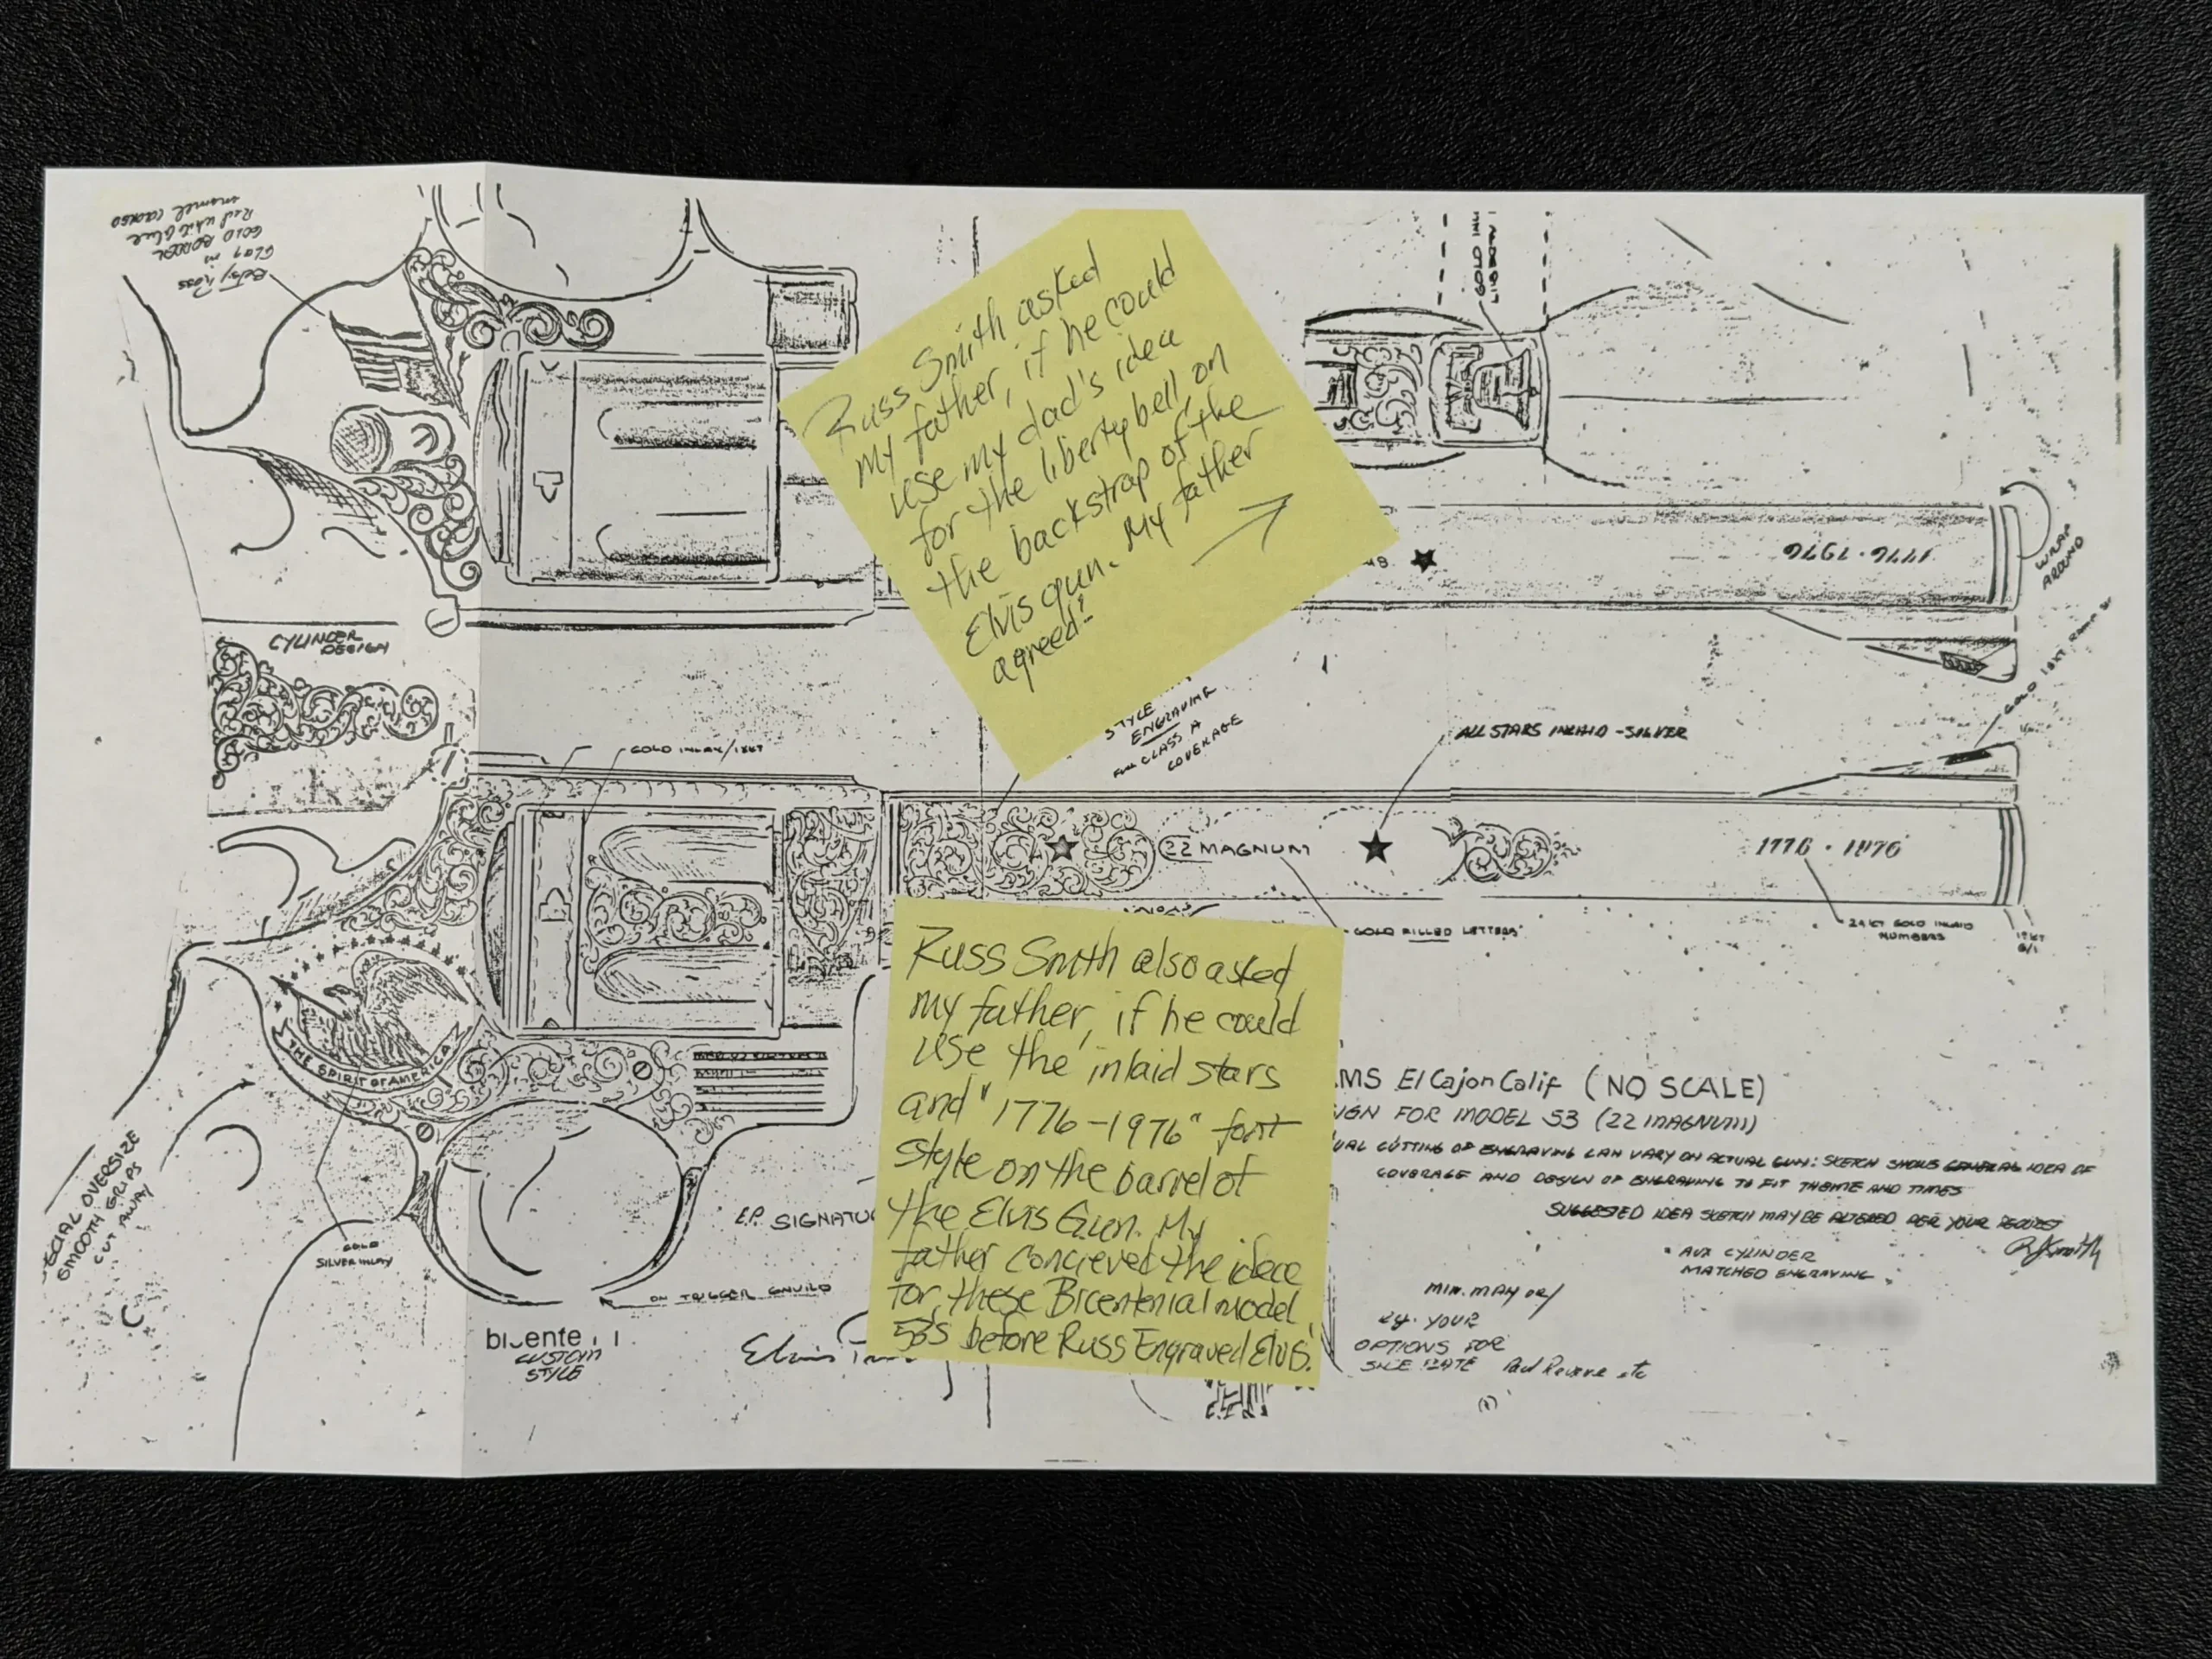 Betsy Ross
Flag in
GOLD BORDER
Red white blue
enamel
GOLD
LIBERTY
Russ Smith asked
my father, if he could
use my dad's idea
for the liberty bell on
the backstrap of the
Elvis gun. My father
agreed!
1776 · 1976
WRAP
AROUND
CYLINDER
DESIGN
STYLE
ENGRAVING
FULL CLASS A
COVERAGE
GOLD INLAY/18KT
ALL STARS INLAID - SILVER
GOLD 18KT
22 MAGNUM
1776 · 1976
GOLD FILLED LETTERS
24KT GOLD INLAID
NUMBERS
THE SPIRIT OF AMERICA
Russ Smith also asked
my father, if he could
use the inlaid stars
and "1776-1976" font
style on the barrel of
the Elvis Gun. My
father concieved the idea
for these Bicentenial model
53's before Russ Engraved Elvis'.
MS El Cajon Calif (NO SCALE)
IGN FOR MODEL 53 (22 MAGNUM)
UAL CUTTING OF ENGRAVING CAN VARY ON ACTUAL GUN: SKETCH SHOWS GENERAL IDEA OF
COVERAGE AND DESIGN OF ENGRAVING TO FIT THEME AND TIMES
SUGGESTED IDEA SKETCH MAY BE ALTERED PER YOUR REQUEST
RJSmith
• AUX CYLINDER
MATCHED ENGRAVING
ECIAL OVERSIZE
SMOOTH GRIPS
CUT AWAY
GOLD
SILVER INLAY
E.P. SIGNATU
ON TRIGGER GAUILD
CUSTOM
STYLE
Elvis
MIN. MAY OR/
eg. YOUR
OPTIONS FOR
SIDE PLATE Paul Revere etc